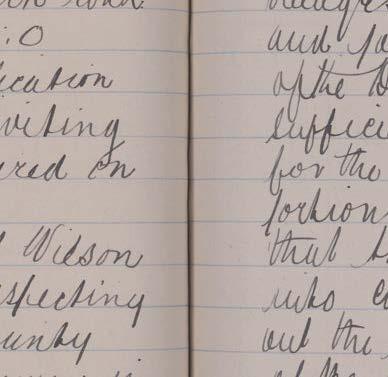 .0
ication
viting
ired on
Wilson
specting
unty
and fo
of the
suffici
for the
portion
that
into c
out the